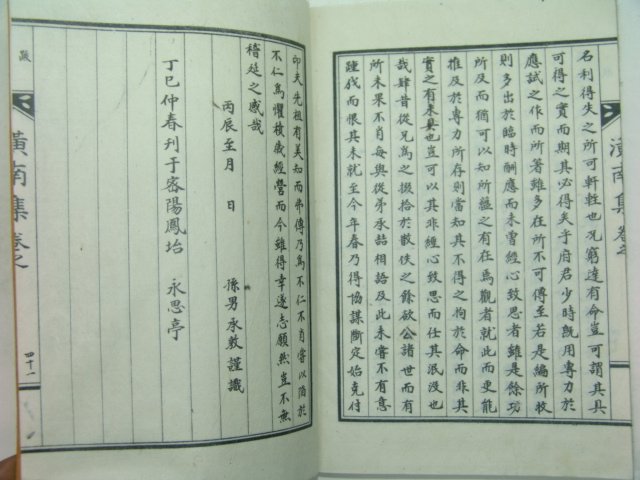 名利得失之所可軒輊也况窮達有命豈可謂其具
可得之實而期其必得矣乎府君少時旣用專力於
應試之作而所著雖多在所不可傳至若是編所收
則多出於臨時酬應而未曾經心致思者雖是餘功
所及而猶可以知所蘊之有在焉觀者就此而更能
推及於專力所存則當知其不得之拘於命而非其
實之有未臭也豈可以其非經心致思而任其泯没也
哉肆昔從兄爲之掇拾於散佚之餘欲公諸世而有
所未果不肖每與從弟承喆相語及此未嘗不有意
踵成而恨其未就至今年春乃得協謀斷定始克付
印夫先祖有美知而弗傳乃爲不仁不肖嘗以陷於
不仁爲懼積歲經營而今雖得幸遂志願然豈不無
稽延之感哉
丙辰至月 日 孫男承敦謹識
丁巳仲春刊于密陽鳳坮 永思亭
潢南集 卷之
跋
潢南集 卷之
四十一